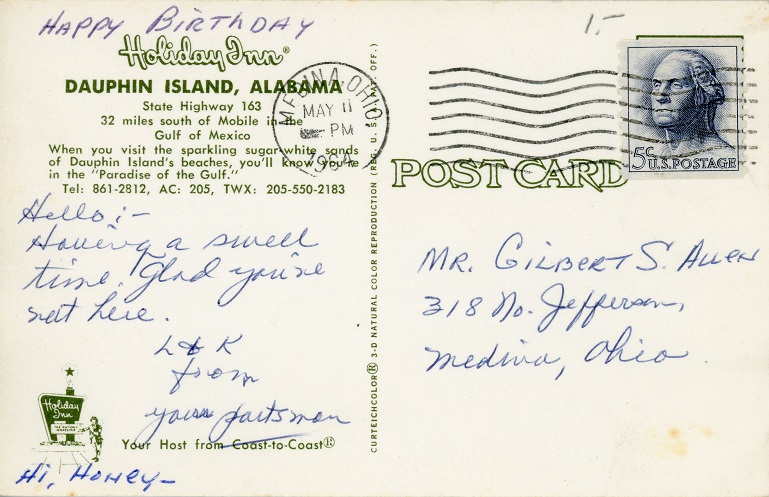 HAPPY BIRTHDAY
Holiday Inn®
DAUPHIN ISLAND, ALABAMA
State Highway 163
32 miles south of Mobile in the
Gulf of Mexico
When you visit the sparkling sugar-white sands
of Dauphin Island's beaches, you'll know you're
in the "Paradise of the Gulf."
Tel: 861-2812, AC: 205, TWX: 205-550-2183
Hello;-
Having a swell
time. Glad you're
not here.
L & K
from
your
Holiday
Inn
Your Host from Coast-to-Coast®
Hi, Honey-
CURTEICHCOLOR® 3-D NATURAL COLOR REPRODUCTION (REG. U. S. PAT. OFF.)
MEDINA, OHIO
MAY 11
PM
1964
1.-
5c U.S. POSTAGE
POST CARD
MR. GILBERT S. ALLEN
318 No. Jefferson,
Medina, Ohio.